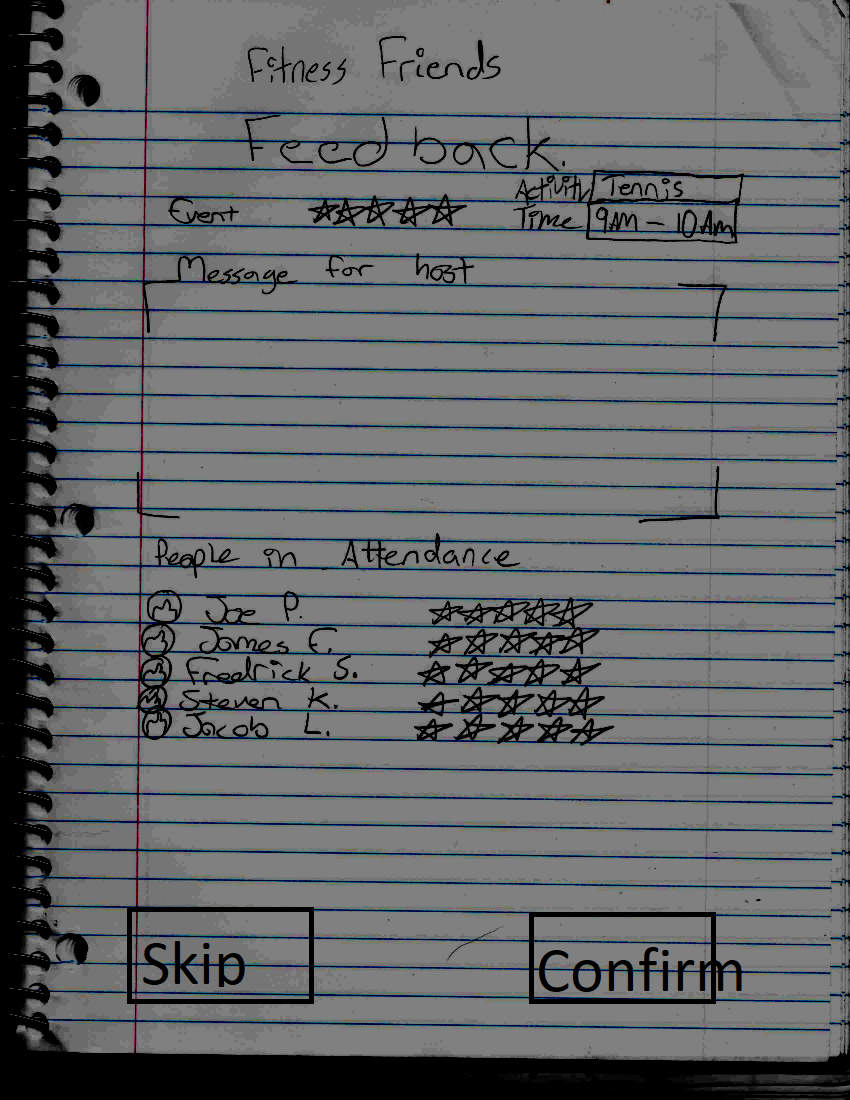 Fitness Friends
Feedback.
Activity Tennis
Event Time 9AM - 10AM
Message for host
People in Attendance
Joe P.
James F.
Fredrick S.
Steven K.
Jacob L.
Skip Confirm